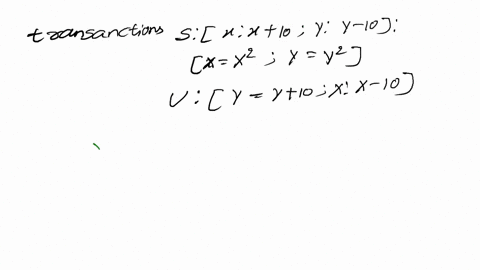 transanctions S:[ x: x+10 ; y: y-10]:
[x= x² ; y = y²]
U: [ y = y+10 ; x: x-10]